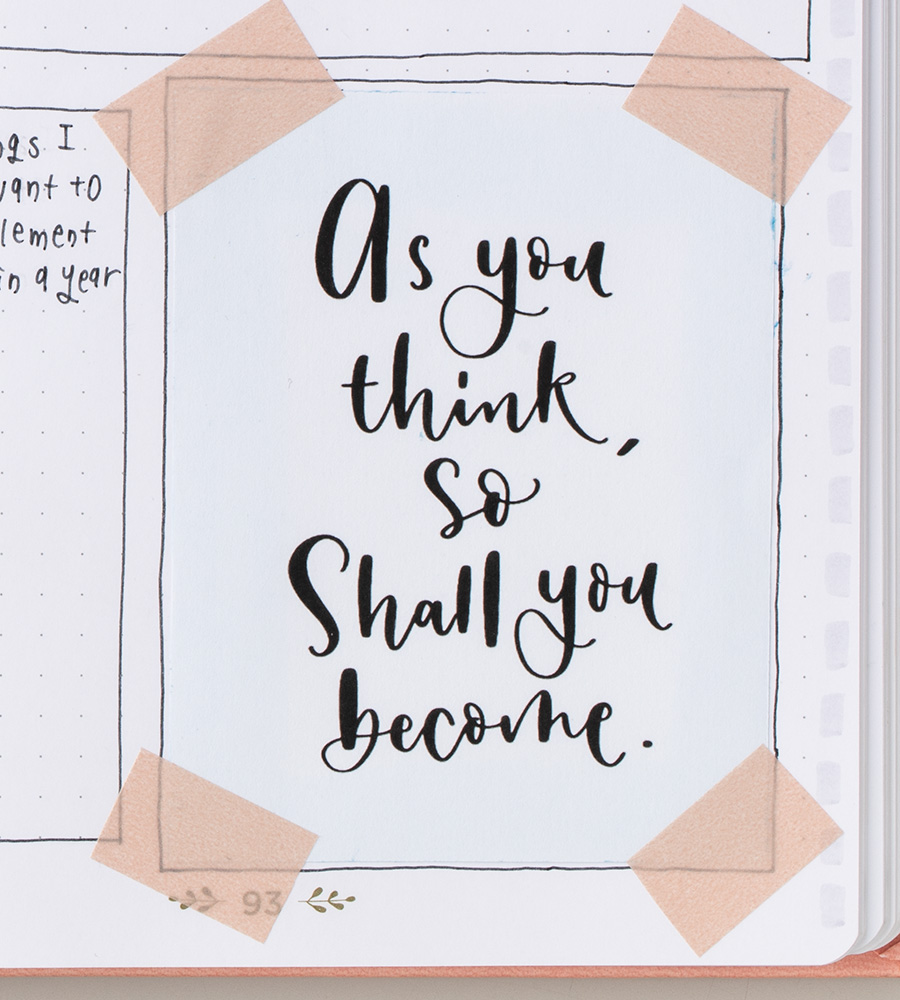 I.
want to
in a year
As you
think,
so
Shall you
become.
93